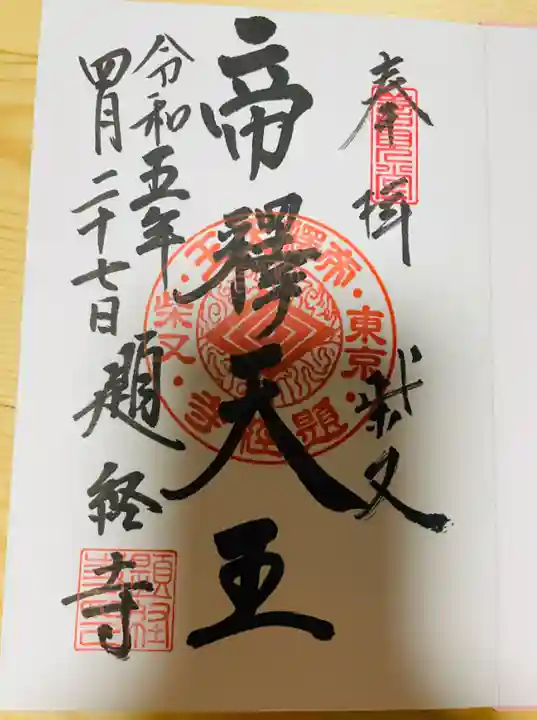 奉拝 柴又
帝釋天王
令和五年
四月二十七日 題経寺
東京・柴又・帝釋天王・題経寺